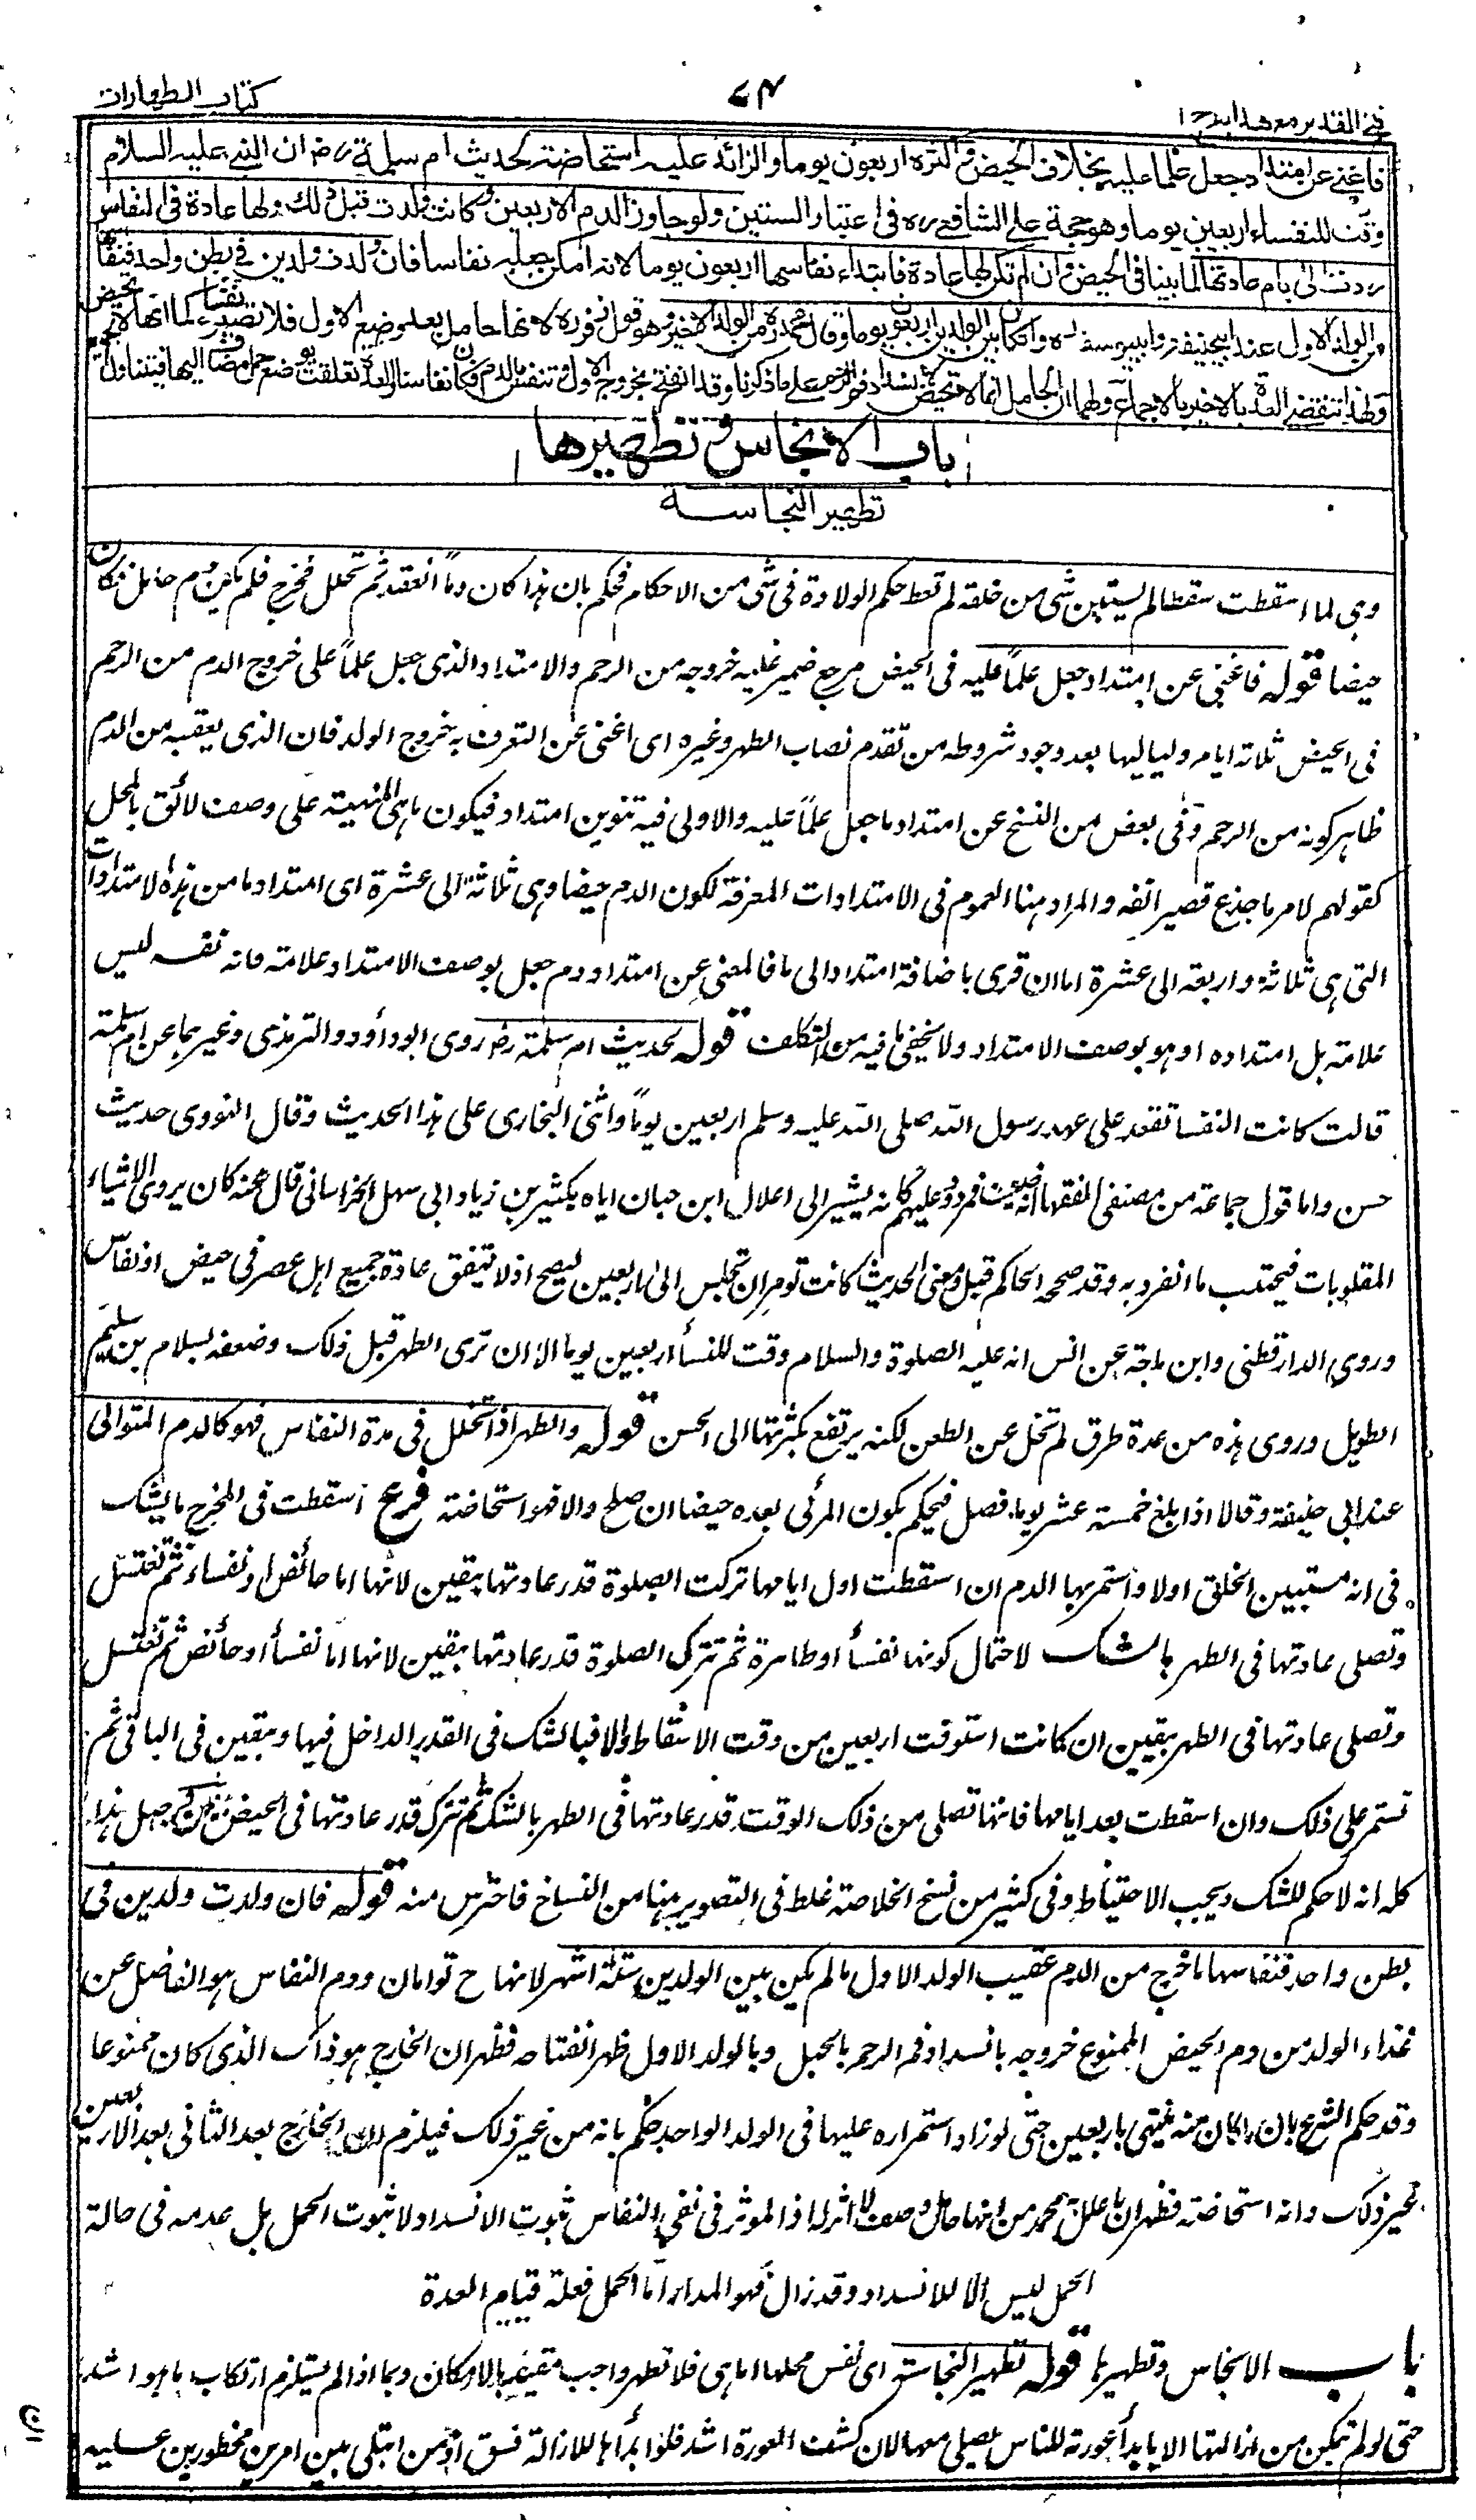 فتح القدير مع هدايه ج ١
٧٤
كتاب الطهارات
فاغنى عن امتداد جعل علما عليه بخلاف الحيض و اكثره اربعون يوما والزائد عليه استحاضة لحديث ام سلمة رض ان النبى عليه السلام
وقت للنفساء اربعين يوما وهو حجة على الشافعى ره فى اعتبار الستين ولو جاوز الدم الاربعين و كانت ولدت قبل ذلك ولها عادة فى النفاس
ردت الى ايام عادتها لما بينا فى الحيض و ان لم تكن لها عادة فابتداء نفاسها اربعون يوما لانه امكن جعله نفاسا فان ولدت ولدين فى بطن واحد فنفاسها
من الولد الاول عند ابيحنيفة و ابييوسف ره و ان كان بين الولدين اربعون يوما وقال محمد ره من الولد الاخير و هو قول زفر ره لانها حامل بعد وضع الاول فلا تصير نفساء كما انها لا تحيض
ولهذا تنقضى العدة بالاخير بالاجماع ولهما ان الحامل انما لا تحيض لانسداد فم الرحم على ما ذكرنا وقد انفتح بخروج الاول و تنفس بالدم فكان نفاسا والعدة تعلقت بوضع حمل مضاف اليها فيتناول الجميع
باب الانجاس و تطهيرها
تطهير النجاسة
وهى لما اسقطت سقطا لم يستبين شئ من خلقه لم تعط حكم الولادة فى شئ من الاحكام فحكم بان هذا كان دماً انعقد ثم تحلل فخرج فلم يكن دم حامل فكان
حيضا قوله فاغنى عن امتداد جعل علماً عليه فى الحيض مرجع ضمير عليه خروجه من الرحم والامتداد الذى جعل علماً على خروج الدم من الرحم
فى الحيض ثلاثة ايام ولياليها بعد وجود شروطه من تقدم نصاب الطهر وغيره اى اغنى عن التعرف به خروج الولد فان الذى يعقبه من الدم
ظاهر كونه من الرحم وفى بعض من النسخ عن امتداد ما جعل علماً عليه والاولى فيه تنوين امتداد فيكون ما هى المنبهة على وصف لائق بالمحل
كقولهم لامر ما جذع قصير انفه والمراد هنا العموم فى الامتدادات المعرفة لكون الدم حيضا وهى ثلاثة الى عشرة اى امتداد ما من هذه الامتدادات
التى هى ثلاثة و اربعة الى عشرة اما ان قرى باضافة امتداد الى ما فالمعنى عن امتداد دم جعل بوصف الامتداد علامة فانه نفسه ليس
علامة بل امتداده او هو بوصف الامتداد ولا يخفى ما فيه من التكلف قوله لحديث ام سلمة رض روى ابو داؤد والترمذى وغيرهما عن ام سلمة
قالت كانت النفسا تقعد على عهد رسول الله صلى الله عليه وسلم اربعين يوماً واثنى البخارى على هذا الحديث وقال النووى حديث
حسن واما قول جماعة من مصنفى الفقها انه ضعيف فمردود عليهم كانه يشير الى اعلال ابن حبان اياه بكثير بن زياد ابى سهل الخراسانى قال عنه كان يروى الاشياء
المقلوبات فيجتنب ما انفرد به وقد صححه الحاكم قيل ومعنى الحديث كانت تومر ان تجلس الى الاربعين ليصح اذ لا تتفق عادة جميع اهل عصر فى حيض او نفاس
وروى الدارقطنى وابن ماجة عن انس انه عليه الصلوة والسلام وقت للنسأ اربعين يوما الا ان ترى الطهر قبل ذلك وضعفه بسلام بن سليم
الطويل وروى هذه من عدة طرق لم تخل عن الطعن لكنه يرتفع بكثرتها الى الحسن قوله والطهر اذا تخلل فى مدة النفاس فهو كالدم المتوالى
عند ابى حنيفة وقالا اذا بلغ خمسة عشر يوما فصل فيحكم بكون المرئى بعده حيضا ان صلح والا فهو استحاضة فرع اسقطت فى المخرج ما يشك
فى انه مستبين الخلق اولا واستمر بها الدم ان اسقطت اول ايامها تركت الصلوة قدر عادتها بيقين لانها اما حائض او نفساء ثم تغتسل
وتصلى عادتها فى الطهر بالشك لاحتمال كونها نفسأ او طاهرة ثم تترك الصلوة قدر عادتها بيقين لانها اما نفسأ او حائض ثم تغتسل
وتصلى عادتها فى الطهر بيقين ان كانت استوفت اربعين من وقت الاسقاط والا فبالشك فى القدر الداخل فيها وبيقين فى الباقى ثم
تستمر على ذلك وان اسقطت بعد ايامها فانها تصلى من ذلك الوقت قدر عادتها فى الطهر بالشك ثم تترك قدر عادتها فى الحيض بيقين وحاصل هذا
كله انه لا حكم للشك ويجب الاحتياط وفى كثير من نسخ الخلاصة غلط فى التصوير هنا من النساخ فاحترس منه قوله فان ولدت ولدين فى
بطن واحد فنفاسها ما خرج من الدم عقيب الولد الاول ما لم يكن بين الولدين ستة اشهر لانها ح توامان ودم النفاس هو الفاضل عن
غذاء الولد من دم الحيض الممنوع خروجه بانسداد فم الرحم بالحبل وبالولد الاول ظهر انفتاحه فظهر ان الخارج هو ذاك الذى كان ممنوعا
وقد حكم الشرع بان ما كان منه ينتهى باربعين حتى لو زاد استمراره عليها فى الولد الواحد حكم بانه من غير ذلك فيلزم الخارج بعد الثانى بعد الاربعين
غير ذلك وانه استحاضة فظهر ان ما علل به محمد من انها حامل وصف لا اثر له اذ الموثر فى نفى النفاس ثبوت الانسداد لا ثبوت الحمل بل عدمه فى حالة
الحمل ليس الا للانسداد وقد زال فهو المدار اما الحمل فعلة قيام العدة
باب الانجاس وتطهيرها قوله تطهير النجاسة اى نفس محلها اما هى فلا تطهر واجب مقيد بالامكان وبما اذا لم يستلزم ارتكاب ما هو اشد
حتى لو لم يتمكن من ازالتها الا بابدأ عورته للناس يصلى معها لان كشف العورة اشد فلو ابدأها للازالة فسق اذ من ابتلى بين امرين محظورين عليه
ان